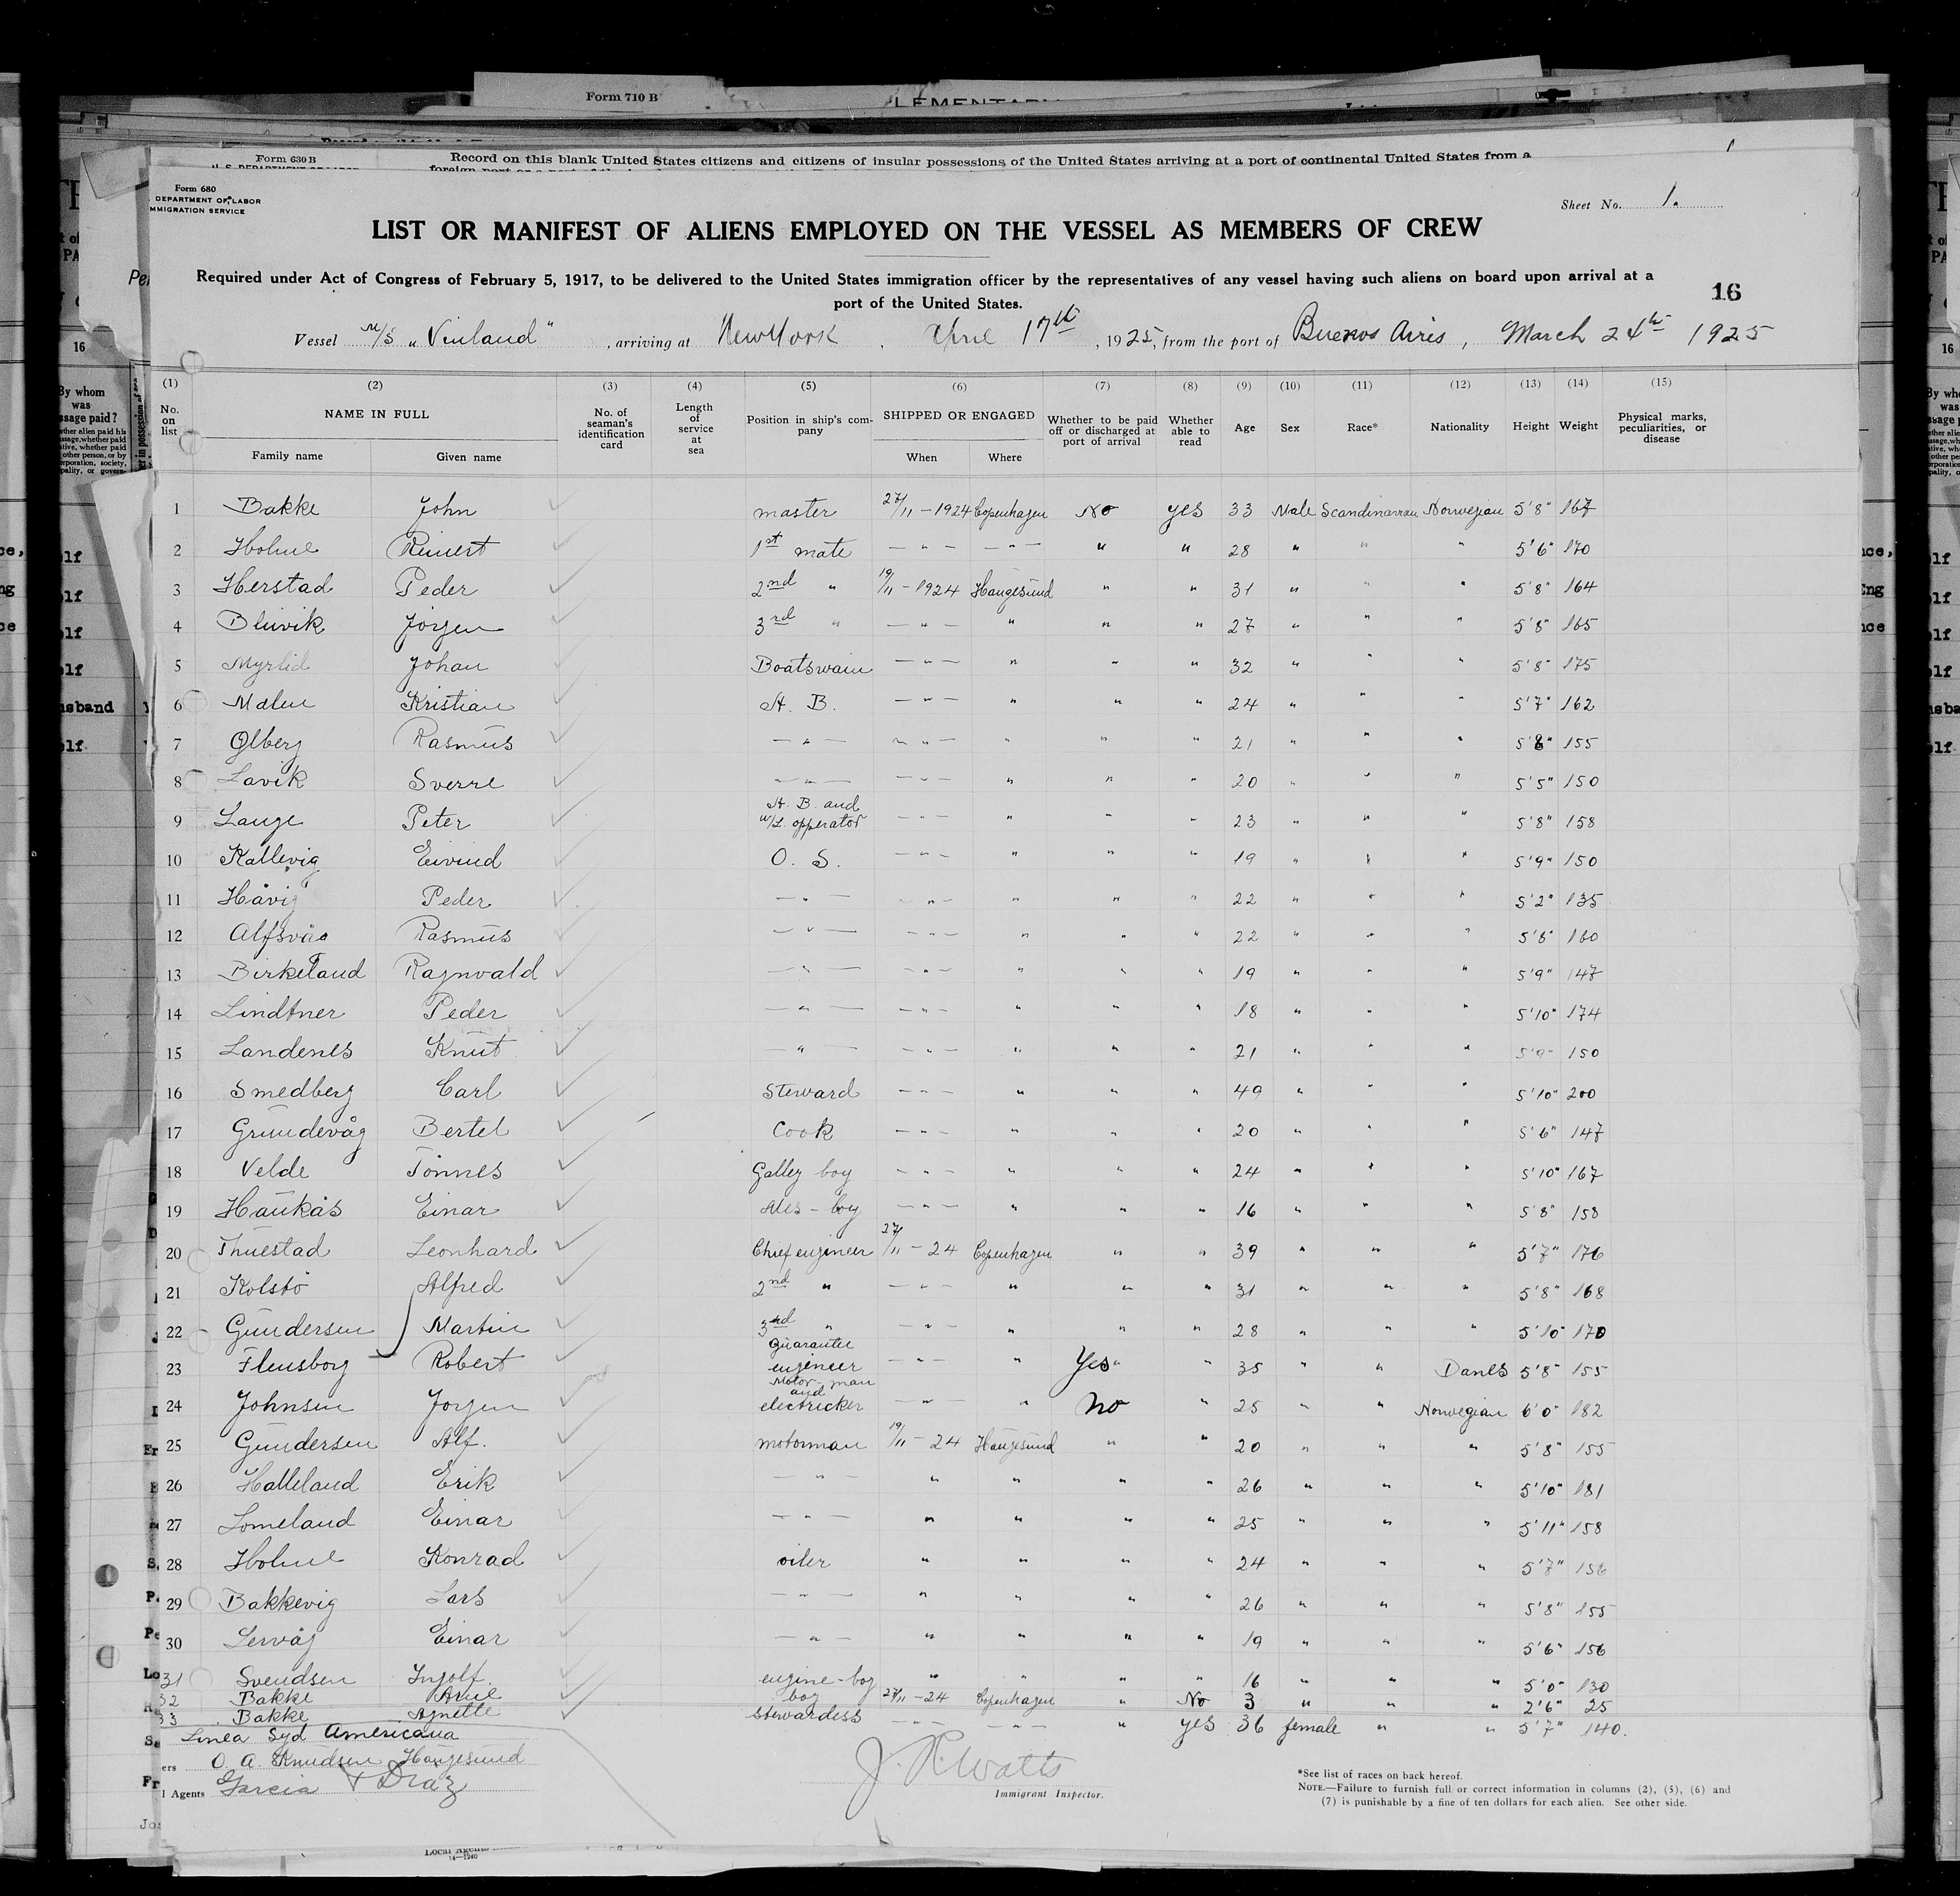 Form 710 B
LEMENTARY
Form 630 B
Record on this blank United States citizens and citizens of insular possessions of the United States arriving at a port of continental United States from a
Form 680
DEPARTMENT OF LABOR
MMIGRATION SERVICE
Sheet No. 1.
LIST OR MANIFEST OF ALIENS EMPLOYED ON THE VESSEL AS MEMBERS OF CREW
Required under Act of Congress of February 5, 1917, to be delivered to the United States immigration officer by the representatives of any vessel having such aliens on board upon arrival at a
port of the United States.
16
Vessel M/S „Vinland“, arriving at New York, April 17th, 1925, from the port of Buenos Aires, March 24th 1925
(1) (2) (3) (4) (5) (6) (7) (8) (9) (10) (11) (12) (13) (14) (15)
No. on list NAME IN FULL Family name Given name No. of seaman's identification card Length of service at sea Position in ship's company SHIPPED OR ENGAGED When Where Whether to be paid off or discharged at port of arrival Whether able to read Age Sex Race* Nationality Height Weight Physical marks, peculiarities, or disease
1 Bakke John master 27/11 - 1924 Copenhagen No yes 33 Male Scandinavian Norwegian 5'8" 167
2 Holme Reinert 1st mate — " — — " — " " 28 " " " 5'6" 170
3 Herstad Peder 2nd " 19/11 - 1924 Haugesund " " 31 " " " 5'8" 164
4 Bleivik Jörgen 3rd " — " — " " " 27 " " " 5'8" 165
5 Myrlid Johan Boatswain — " — " " " 32 " " " 5'8" 175
6 Kristian A. B. — " — " " " 24 " " " 5'7" 162
7 Ølberg Rasmus — " — — " — " " " 21 " " " 5'8" 155
8 Lavik Sverre — " — — " — " " " 20 " " " 5'5" 150
9 Lange Peter A. B. and w/L. opperator — " — " " " 23 " " " 5'8" 158
10 Kallevig Eivind O. S. — " — " " " 19 " " " 5'9" 150
11 Håvig Peder — " — — " — " " " 22 " " " 5'2" 135
12 Alfsvåg Rasmus — " — — " — " " " 22 " " " 5'8" 160
13 Birkeland Ragnvald — " — — " — " " " 19 " " " 5'9" 147
14 Lindtner Peder — " — — " — " " " 18 " " " 5'10" 174
15 Landenes Knut — " — — " — " " " 21 " " " 5'9" 150
16 Smedberg Carl Steward — " — " " " 49 " " " 5'10" 200
17 Grundevåg Bertel Cook — " — " " " 20 " " " 5'6" 147
18 Velde Tönnes Galley boy — " — " " " 24 " " " 5'10" 167
19 Haukås Einar Mes - boy — " — " " " 16 " " " 5'8" 158
20 Thuestad Leonhard Chief engineer 27/11 - 24 Copenhagen " " 39 " " " 5'7" 176
21 Kolstö Alfred 2nd " — " — " " " 31 " " " 5'8" 168
22 Gundersen Martin 3rd " — " — " " " 28 " " " 5'10" 170
23 Flensborg Robert Guarantee engineer — " — " Yes " 35 " " Danes 5'8" 155
24 Johnsen Jorgen Motor-man and electricker — " — " No " 25 " " Norwegian 6'0" 182
25 Gundersen Alf. motorman 19/11 - 24 Haugesund " " 20 " " " 5'8" 155
26 Halleland Erik — " — " " " " 26 " " " 5'10" 181
27 Lomeland Einar — " — " " " " 25 " " " 5'11" 158
28 Holme Konrad oiler " " " " 24 " " " 5'7" 156
29 Bakkevig Lars — " — " " " " 26 " " " 5'8" 155
30 Lervåg Einar — " — " " " " 19 " " " 5'6" 156
31 Svendsen Ingolf. engine-boy " " " " 16 " " " 5'0" 130
32 Bakke Arne boy 27/11 - 24 Copenhagen " No 3 " " " 2'6" 25
33 Bakke Agnette stewardess — " — — " — " yes 36 female " " 5'7" 140.
Linea Syd Americana
ers O. A. Knudsen Haugesund
l Agents Garcia & Diaz
J. R. Watts
Immigrant Inspector.
*See list of races on back hereof.
NOTE.—Failure to furnish full or correct information in columns (2), (5), (6) and
(7) is punishable by a fine of ten dollars for each alien. See other side.
Local Agents
14—1240